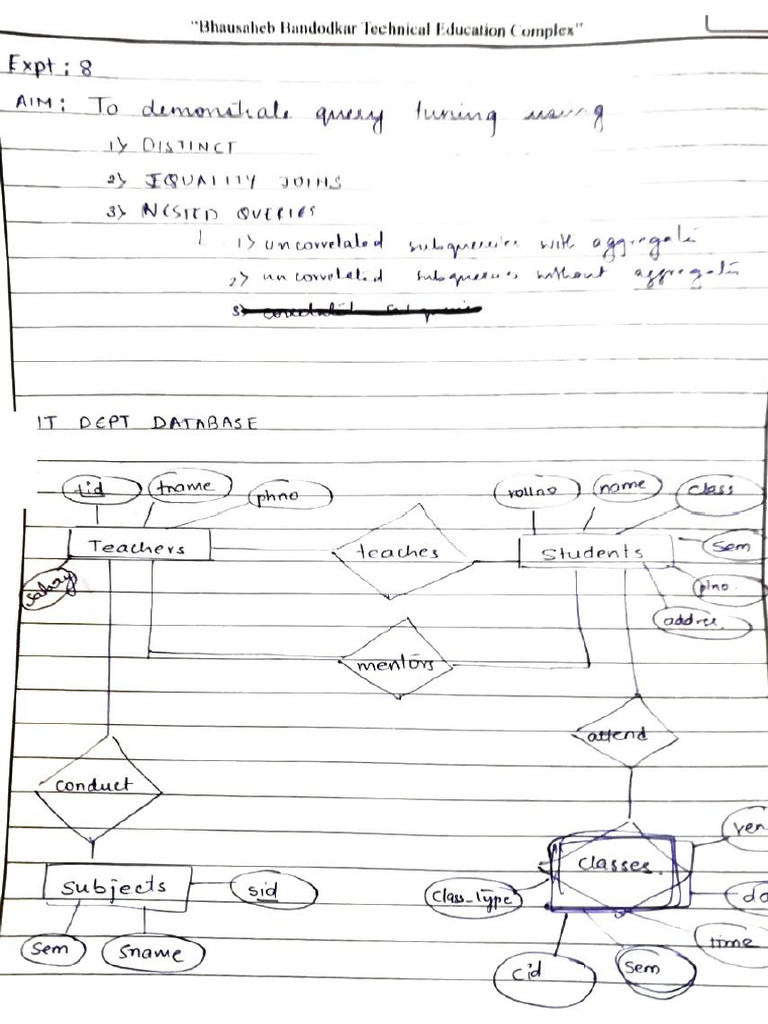 "Bhausaheb Bandodkar Technical Education Complex"
Expt : 8
AIM : To demonstrate query tuning using
1) DISTINCT
2) EQUALITY JOINS
3) NESTED QUERIES
1) uncorrelated subqueries with aggregate
2) uncorrelated subqueries without aggregate
3)
IT DEPT DATABASE
tid tname phno rollno name class
Teachers teaches Students sem
salary phno.
addres
mentors
attend
conduct
ven
classes.
subjects sid class_type da
sem sname time
cid sem